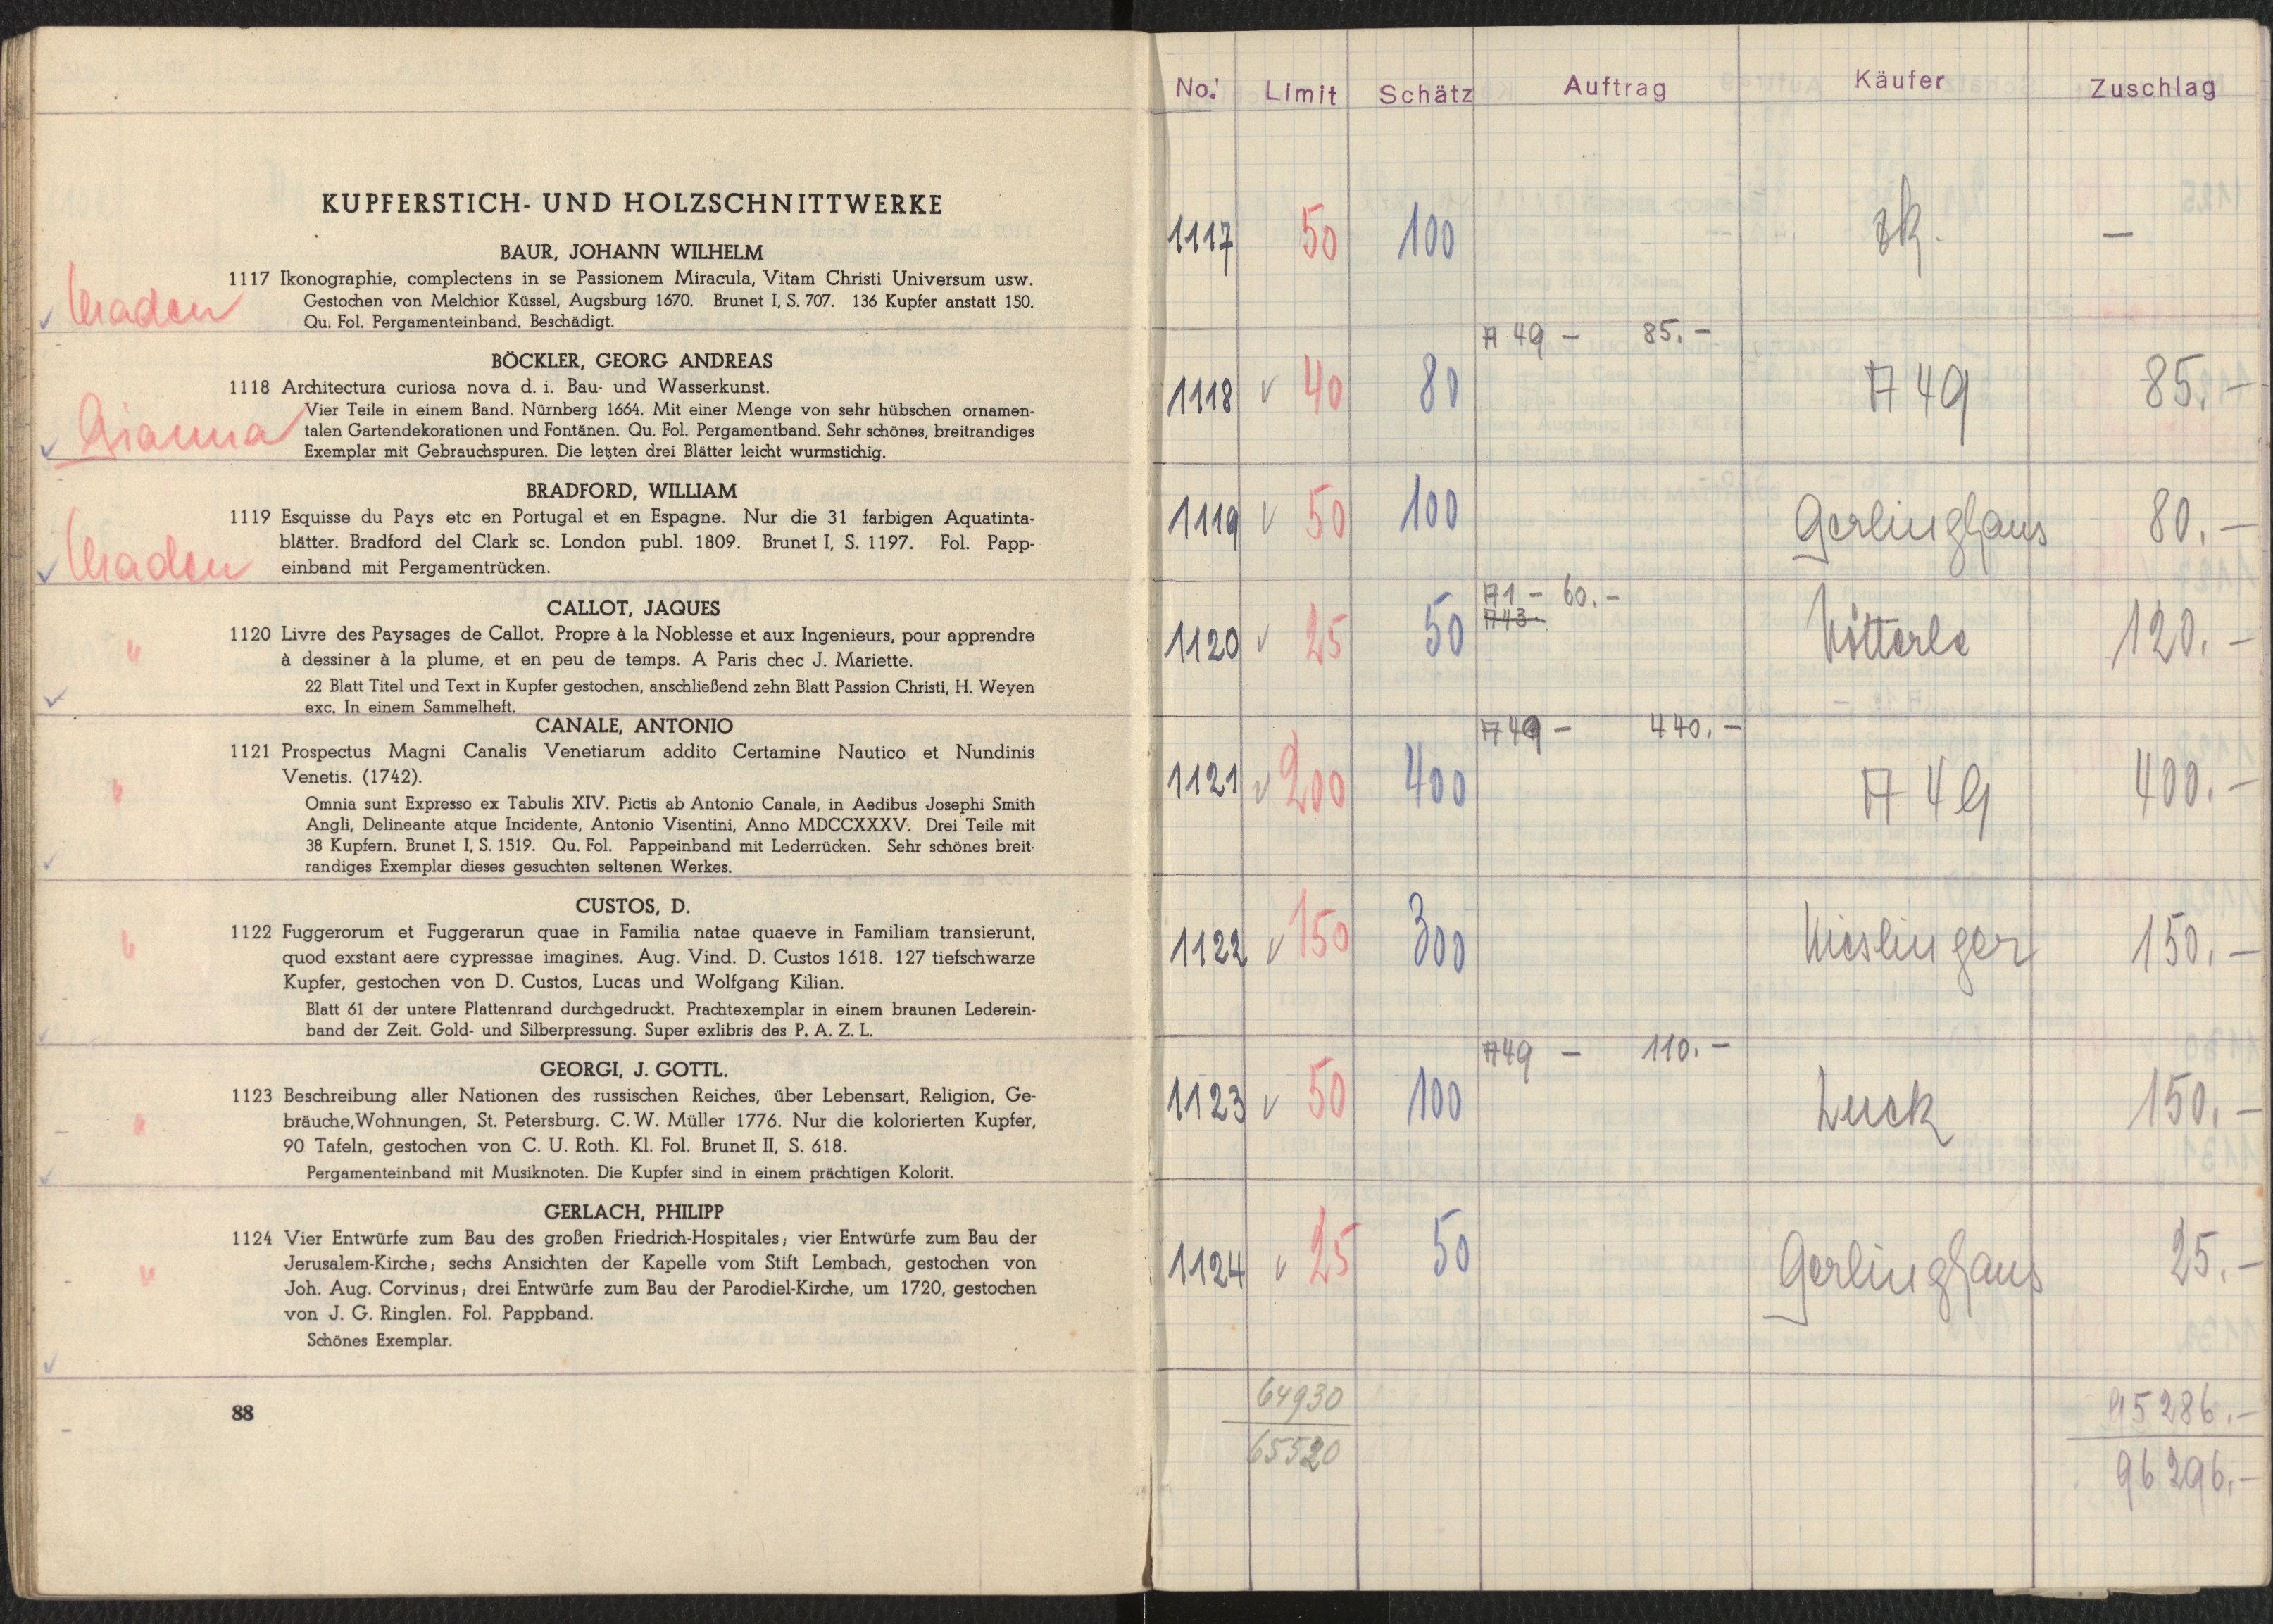 KUPFERSTICH- UND HOLZSCHNITTWERKE
BAUR, JOHANN WILHELM
1117 Ikonographie, complectens in se Passionem Miracula, Vitam Christi Universum usw.
Gestochen von Melchior Küssel, Augsburg 1670. Brunet I, S. 707. 136 Kupfer anstatt 150.
Qu. Fol. Pergamenteinband. Beschädigt.
BÖCKLER, GEORG ANDREAS
1118 Architectura curiosa nova d. i. Bau- und Wasserkunst.
Vier Teile in einem Band. Nürnberg 1664. Mit einer Menge von sehr hübschen ornamen-
Gianna talen Gartendekorationen und Fontänen. Qu. Fol. Pergamentband. Sehr schönes, breitrandiges
Exemplar mit Gebrauchspuren. Die letzten drei Blätter leicht wurmstichig.
BRADFORD, WILLIAM
1119 Esquisse du Pays etc en Portugal et en Espagne. Nur die 31 farbigen Aquatinta-
blätter. Bradford del Clark sc. London publ. 1809. Brunet I, S. 1197. Fol. Papp-
einband mit Pergamentrücken.
CALLOT, JAQUES
1120 Livre des Paysages de Callot. Propre à la Noblesse et aux Ingenieurs, pour apprendre
" à dessiner à la plume, et en peu de temps. A Paris chec J. Mariette.
22 Blatt Titel und Text in Kupfer gestochen, anschließend zehn Blatt Passion Christi, H. Weyen
exc. In einem Sammelheft.
CANALE, ANTONIO
1121 Prospectus Magni Canalis Venetiarum addito Certamine Nautico et Nundinis
" Venetis. (1742).
Omnia sunt Expresso ex Tabulis XIV. Pictis ab Antonio Canale, in Aedibus Josephi Smith
Angli, Delineante atque Incidente, Antonio Visentini, Anno MDCCXXXV. Drei Teile mit
38 Kupfern. Brunet I, S. 1519. Qu. Fol. Pappeinband mit Lederrücken. Sehr schönes breit-
randiges Exemplar dieses gesuchten seltenen Werkes.
CUSTOS, D.
1122 Fuggerorum et Fuggerarun quae in Familia natae quaeve in Familiam transierunt,
" quod exstant aere cypressae imagines. Aug. Vind. D. Custos 1618. 127 tiefschwarze
Kupfer, gestochen von D. Custos, Lucas und Wolfgang Kilian.
Blatt 61 der untere Plattenrand durchgedruckt. Prachtexemplar in einem braunen Lederein-
band der Zeit. Gold- und Silberpressung. Super exlibris des P. A. Z. L.
GEORGI, J. GOTTL.
1123 Beschreibung aller Nationen des russischen Reiches, über Lebensart, Religion, Ge-
" bräuche, Wohnungen, St. Petersburg. C. W. Müller 1776. Nur die kolorierten Kupfer,
90 Tafeln, gestochen von C. U. Roth. Kl. Fol. Brunet II, S. 618.
Pergamenteinband mit Musiknoten. Die Kupfer sind in einem prächtigen Kolorit.
GERLACH, PHILIPP
1124 Vier Entwürfe zum Bau des großen Friedrich-Hospitales; vier Entwürfe zum Bau der
" Jerusalem-Kirche; sechs Ansichten der Kapelle vom Stift Lembach, gestochen von
Joh. Aug. Corvinus; drei Entwürfe zum Bau der Parodiel-Kirche, um 1720, gestochen
von J. G. Ringlen. Fol. Pappband.
Schönes Exemplar.
88
No. Limit Schätz Auftrag Käufer Zuschlag
1117 50 100 zk. —
A 49 — 85.—
1118 v 40 80 A 49 85.—
1119 v 50 100 Gerlinghaus 80.—
A 1 — 60.—
A43
1120 v 25 50 120.—
A 49 — 440.—
1121 v 200 400 A 49 400.—
1122 v 150 300 Kieslinger 150.—
A49 — 110.—
1123 v 50 100 Luck 150.—
1124 v 25 50 Gerlinghaus 25.—
64930 95286.—
65520 96296.—